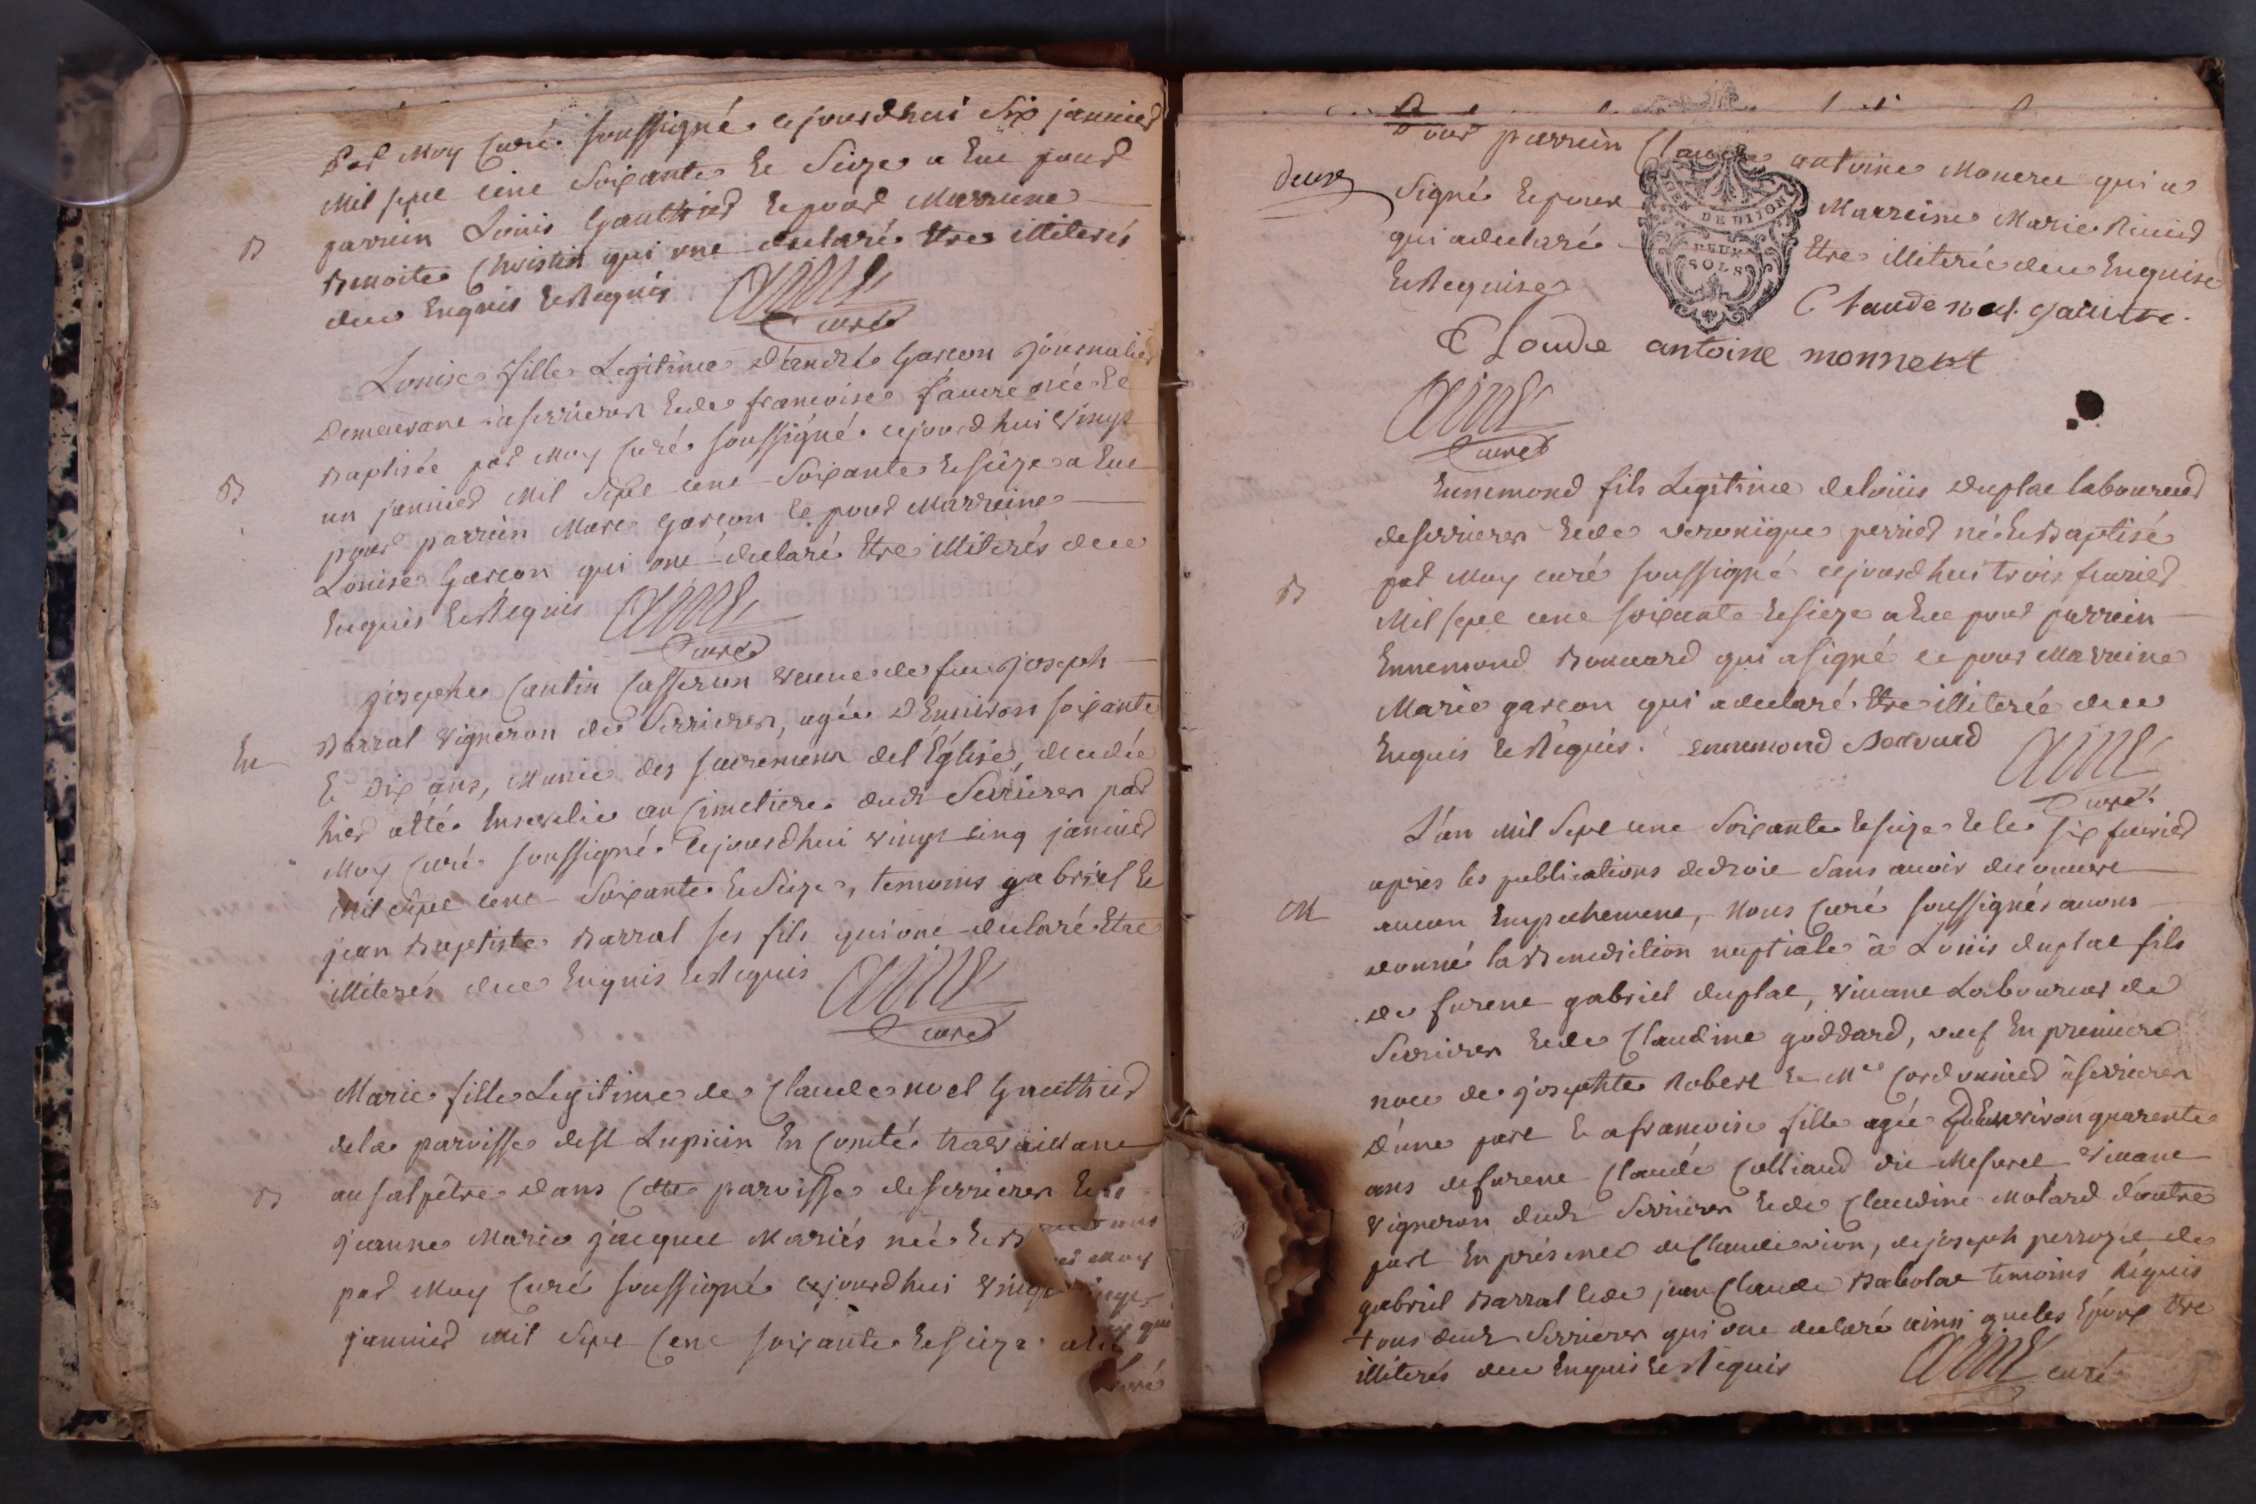 par Moy Curé soussigné cejourdhui six janvier
Mil sept cent soixante et seize a Eue pour
B
parrein Louis Gauthier et pour Marreine
Benoite Christin qui ont declaré Etre illiterés
deue Enquis et Requis
Curé
Louise fille Legitime D'andre Garcon journalier
Demeurant a serrieres et de francoise faure née et
Baptisée par Moy Curé soussigné cejourdhui vingt
B
un janvier Mil sept cent soixante et seize a Eue
pour parrein Marc Garcon et pour Marreine
Louise Garcon qui ont declaré Etre illiterés deue
Enquis et Requis
Curé
josephe Cantin veuve de feu joseph
En
Barral vigneron de Serrieres, agée D'Environ soixante
et dix ans, Munie des sacremens de l'Église, decedée
hier a été Ensevelie au Cimetiere dudt Serrieres par
Moy Curé soussigné cejourdhui vingt cinq janvier
Mil sept cent soixante et seize, temoins gabriel et
jean Baptiste Barral ses fils qui ont declaré Etre
illiterés deue Enquis et Requis
Curé
Marie fille Legitime de Claude noel Gauthier
de la paroisse de st Lupicin En Comté travaillant
B
au salpêtre dans Cette paroisse de serrieres et de
jeanne Marie jacquet Mariés née et B
par Moy Curé soussigné cejourdhui vingt
janvier mil sept Cent soixante et seize a Eue
Pour parrein Claude antoine Moneret qui a
deux
Signé et pour Marreine Marie
GEN DE DIJON
qui a declaré Etre illiterée deue Enquise
DEUX
SOLS
et Requise
Claude noel gautie
Cloude antoine monneret
Curé
Ennemond fils Legitime de loüis duplat laboureur
de serrieres et de veronique perrier né et Baptisé
B
par Moy curé soussigné cejourdhui trois fevrier
Mil sept cent soixante et seize a Eue pour parrein
Ennemond Bonnard qui a signé et pour Marreine
Marie garcon qui a declaré Etre illiterée deue
Enquis et Requis. ennemond
Curé
L'an Mil Sept cent Soixante et seize et le six fevrier
apres les publications de droit sans avoir decouvert
M
aucun Empechement, Nous Curé soussigné avons
donné la Benediction nuptiale à Loüis duplat fils
de furent gabriel duplat, vivant Laboureur de
Serrieres et de Claudine goddard, veuf En premiere
noce de josephte Robert et Me Cordonnier à serrieres
d'une part et a francoise fille agée D'Environ quarente
ans de furent Claude Colliaud dit vivant
vigneron dudt Serrieres et de Claudine Molard d'autre
part En présence de Claude vion, de joseph de
gabriel Barral et de jean Claude Babolat temoins Réquis
tous dudt Serrieres qui ont declaré ainsi que les Époux Etre
illiterés deue Enquis et Réquis
curé